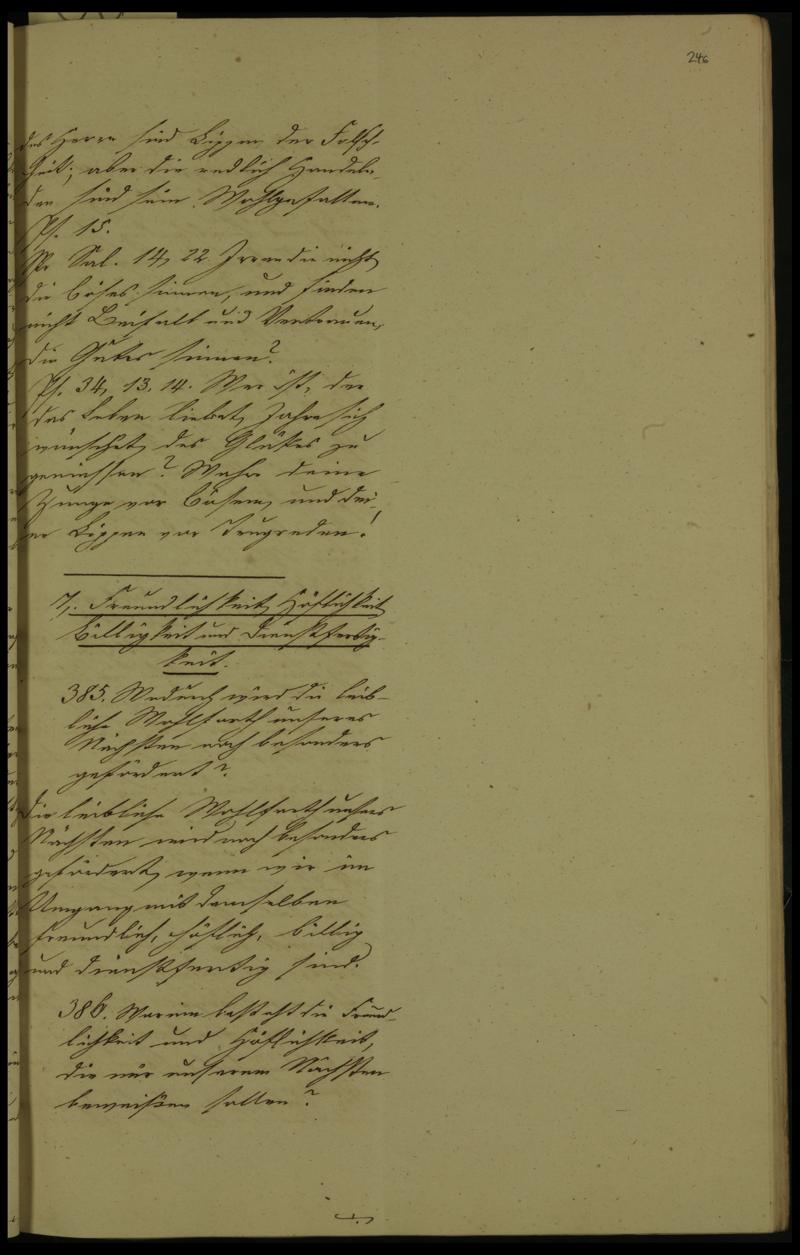 246
des Herrn sind Lippen der Falsch-
heit; aber die redlich Handeln-
den sind sein Wohlgefallen.
Ps. 15.
Spr. Sal. 14, 22. Irren die nicht,
die Böses sinnen, und finden
nicht Beifall und Vertrauen,
die Gutes sinnen?
Ps. 34, 13. 14. Wer ist, der
das Leben liebet, Jahre sich
wünschet, des Glückes zu
geniessen? Wahre deine
Zunge vor Bösem, und dei-
ne Lippen vor Trugreden!
7. Freundlichkeit, Höflichkeit
Billigkeit und Dienstfertig-
keit.
385. Wodurch wird die leib-
liche Wohlfarth unseres
Nächsten noch besonders
gefördert?
Die leibliche Wohlfarth unseres
Nächsten wird noch besonders
gefördert, wenn wir im
Umgang mit demselben
freundlich, höflich, billig
und dienstfertig sind.
386. Worinn besteht die Freund-
lichkeit und Höflichkeit,
die wir unserem Nächsten
beweißen sollen?